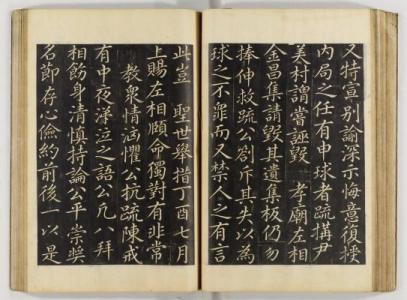 又特宣別諭深示悔意復授
内局之任有申球者疏搆尹
美村謂嘗誣毁 孝廟左相
金昌集請毁其遺集板仍勿
捧伸救疏公劄斥其失以為
球之不罪而又禁人之有言
此豈 聖世舉措丁酉七月
上賜左相頤命獨對有非常
教衆情洶懼公抗疏陳戒
有中夜涕泣之語公凡八拜
相飭身清慎持論公平崇奬
名節存心儉約前後一以是